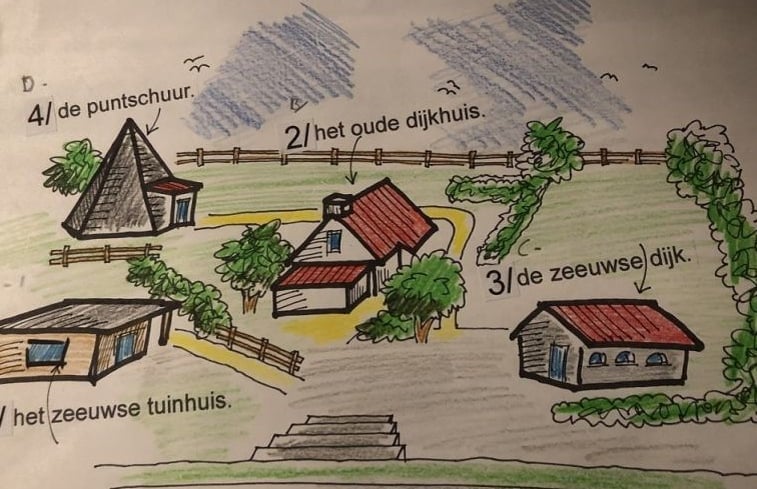 D-
4/ de puntschuur.
B
2/ het oude dijkhuis.
C-
3/ de zeeuwse dijk.
/ het zeeuwse tuinhuis.